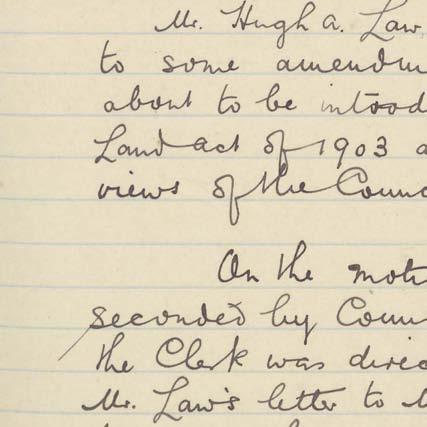 Mr. Hugh A. Law,
to some amendm
about to be introd
Land act of 1903 a
views of the Counc
On the moti
seconded by Coun
the Clerk was direc
Mr. Law's letter to